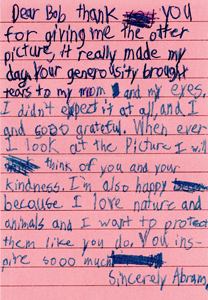 Dear Bob thank you
for giving me the otter
picture, it really made my
day, Your generousity brought
tears to my mom and my eyes.
I didn't expect it at all, and I
and sooo grateful. When ever
I look at the Picture I will
think of you and your
kindness. I'm also happy
because I love nature and
animals and I want to protect
them like you do. You ins-
pire sooo much
Sincerely Abram,